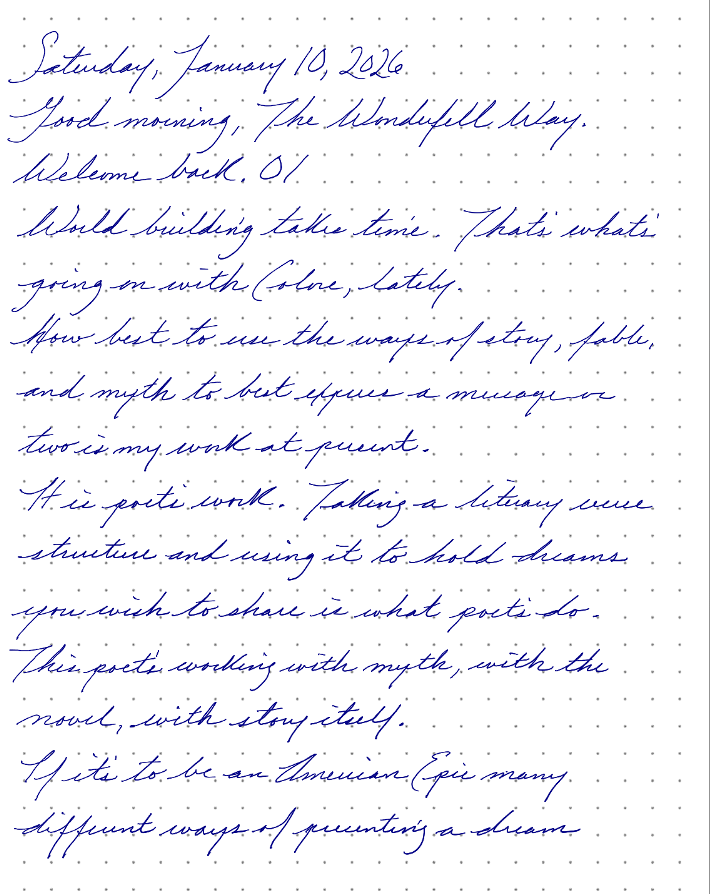 Saturday, January 10, 2026
Good morning, The Wonderfell Way.
Welcome back. 01
World building takes time. That's what's
going on with Colore, lately.
How best to use the ways of story, fable,
and myth to best express a message or
two is my work at present.
It is poet's work. Taking a literary verse
structure and using it to hold dreams
you wish to share is what poets do.
This poet's working with myth, with the
novel, with story itself.
If it's to be an American Epic many
different ways of presenting a dream